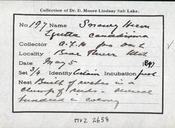 Collection of Dr. D. Moore Lindsay Salt Lake.
No 197 Name Snowy Heron
Egretta candidissima
Collector
Locality Bear River Utah
Date May 5 1897
Set 3/4 Identity Certain Incubation fresh
Nest Built of reeds in a
clump of reeds. Several
hundred in colony
MVZ 2658